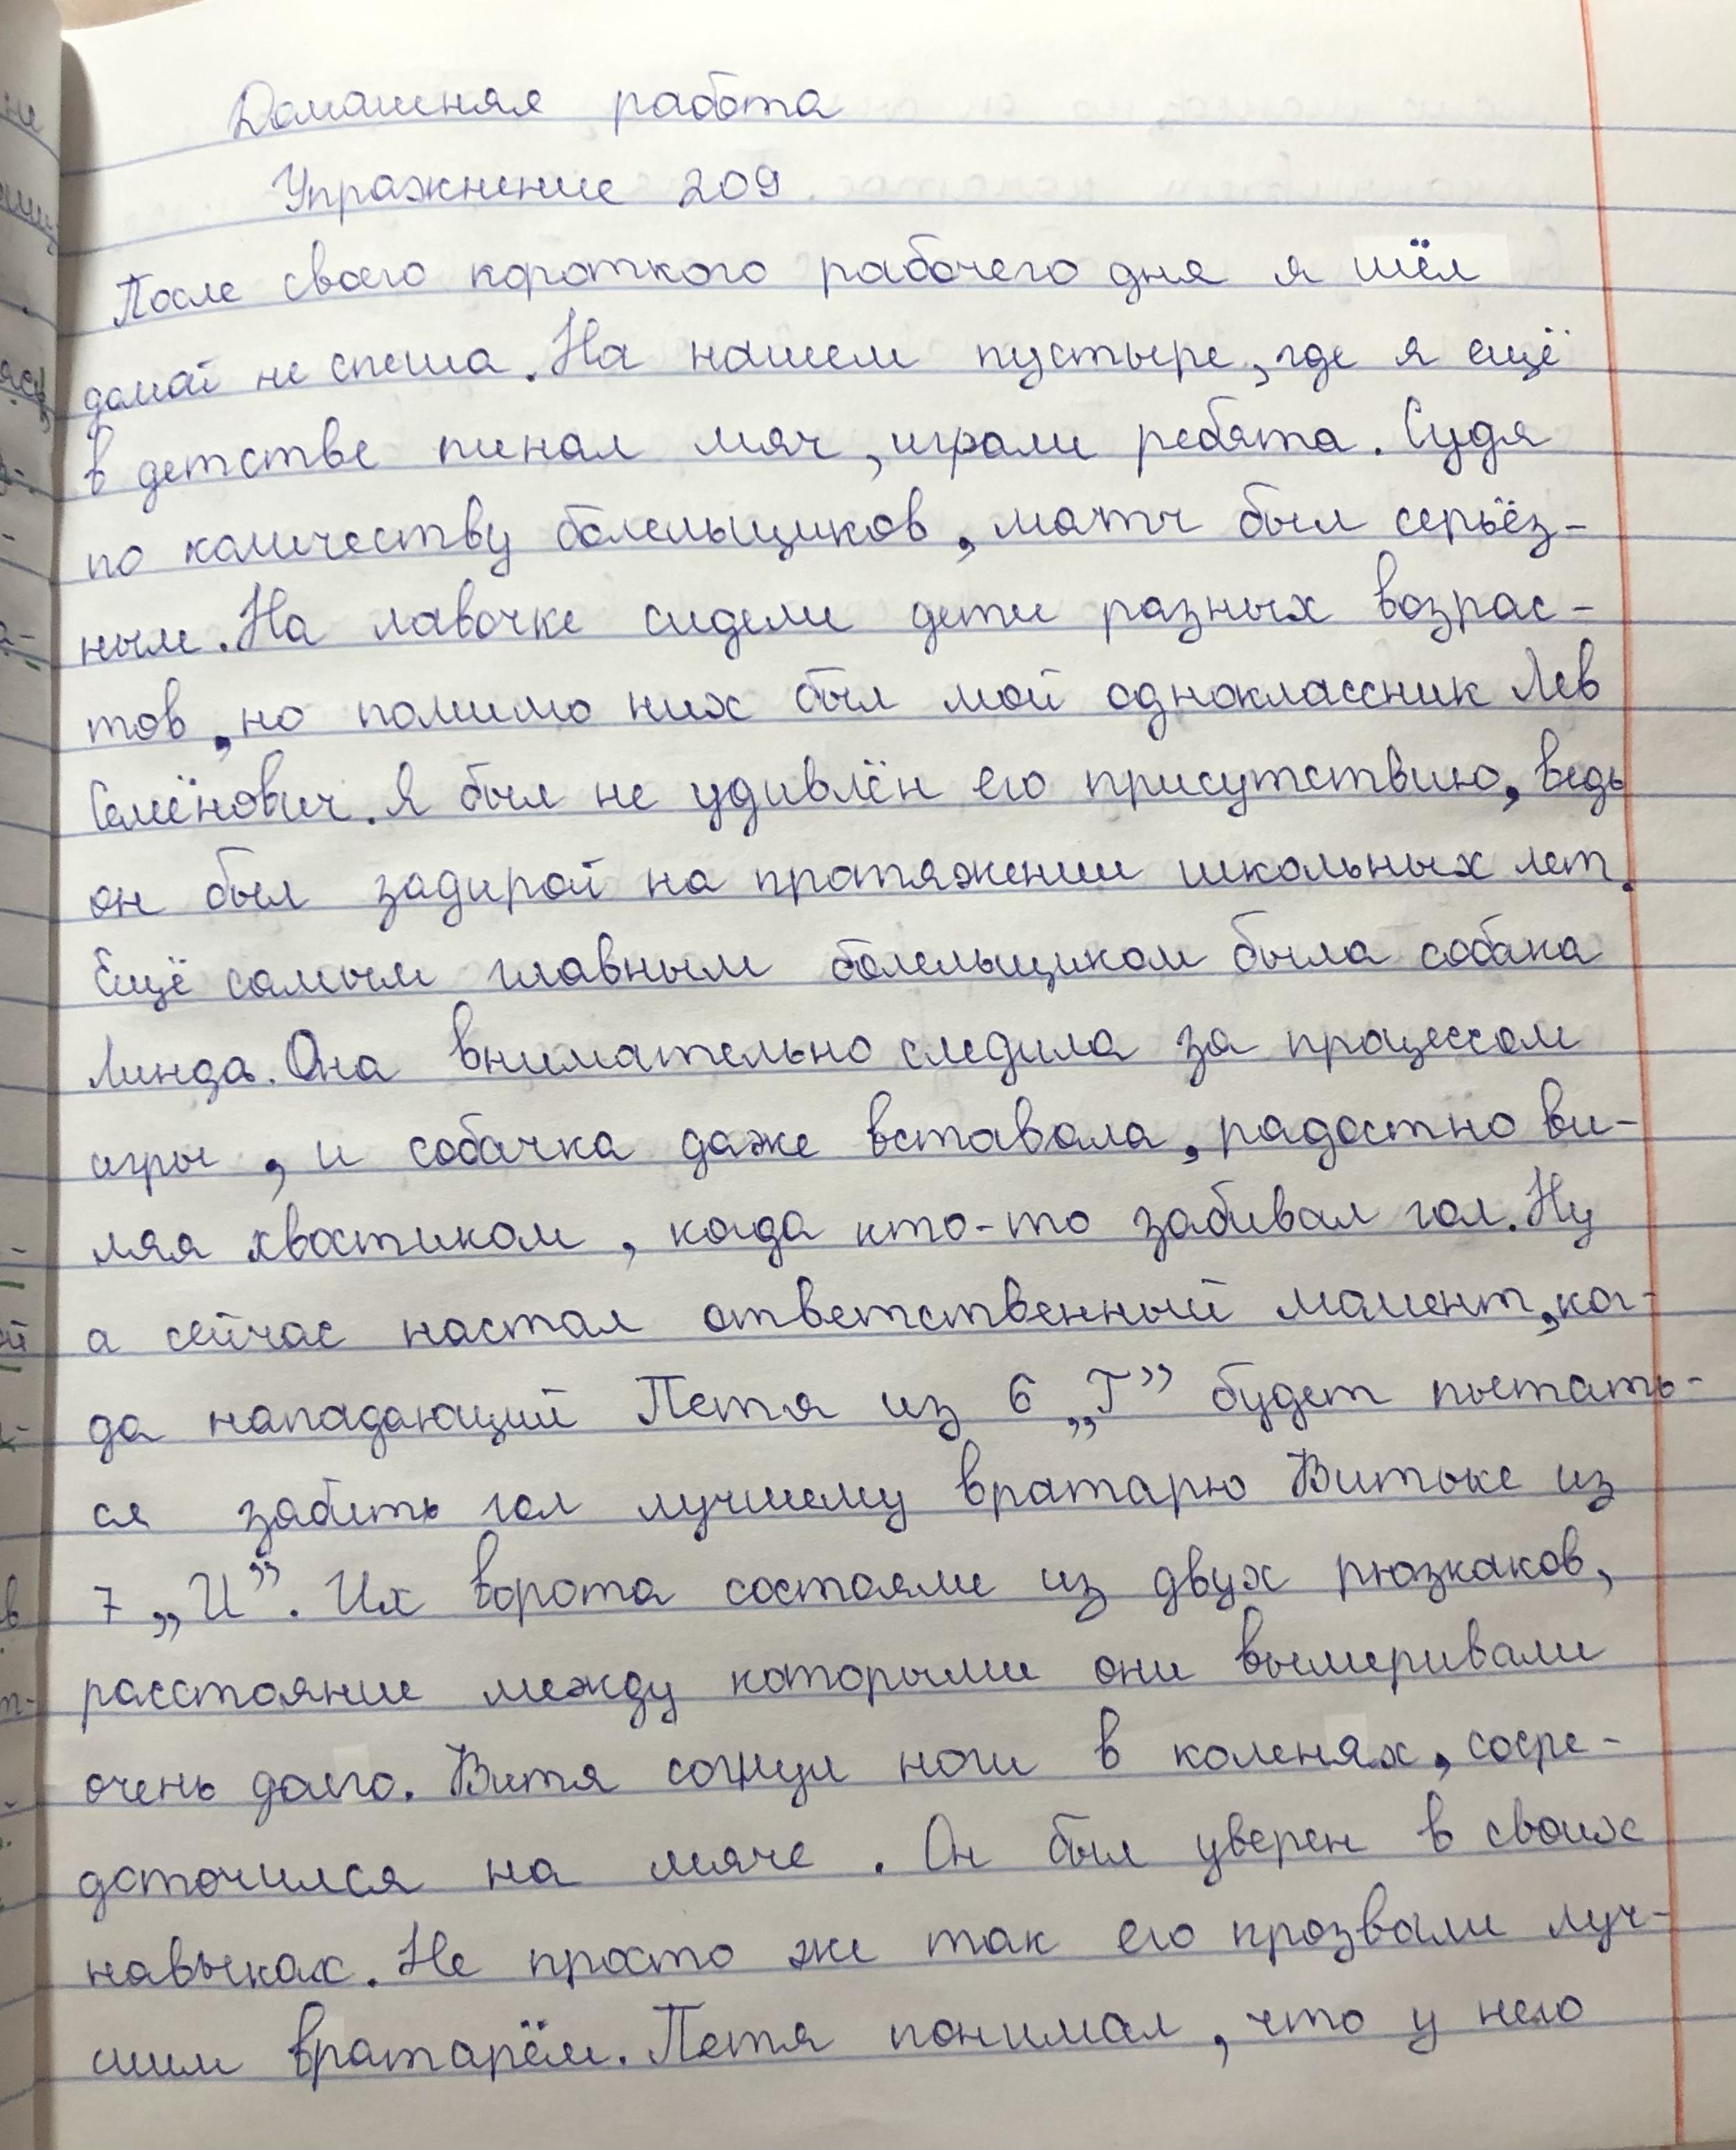 Домашняя работа
Упражнение 209
После своего короткого рабочего дня я шёл
домой не спеша. На нашем пустыре, где я ещё
в детстве пинал мяч, играли ребята. Судя
по количеству болельщиков, матч был серьёз-
ным. На лавочке сидели дети разных возрас-
тов, но помимо них был мой одноклассник Лев
Семёнович. Я был не удивлён его присутствию, ведь
он был задирой на протяжении школьных лет.
Ещё самым главным болельщиком была собака
Линда. Она внимательно следила за процессом
игры, и собачка даже вставала, радостно ви-
ляя хвостиком, когда кто-то забивал гол. Ну
а сейчас настал ответственный момент, ког-
да нападающий Петя из 6 „Г” будет пытать-
ся забить гол лучшему вратарю Витьке из
7 „И”. Их ворота состояли из двух рюзкаков,
расстояние между которыми они вымеривали
очень долго. Витя согнул ноги в коленях, сосре-
доточился на мяче. Он был уверен в своих
навыках. Не просто же так его прозвали луч-
шим вратарём. Петя понимал, что у него